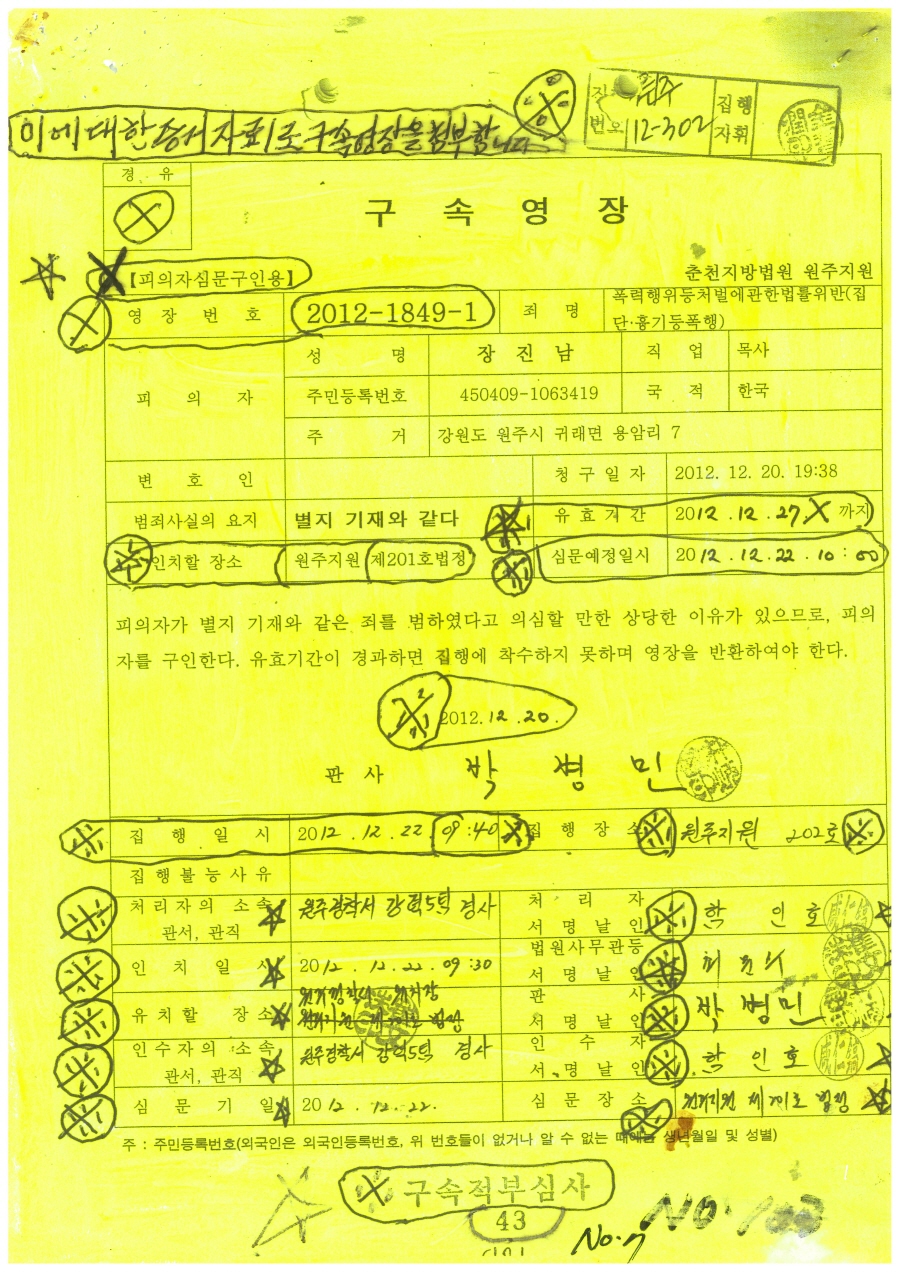 이에 대한 증서 자료로 구속영장을 첨부합니다
집행 번호 원주 12-302 집행 자휘
경 유
구 속 영 장
【피의자심문구인용】
춘천지방법원 원주지원
영 장 번 호 2012-1849-1 죄 명 폭력행위등처벌에관한법률위반(집단·흉기등폭행)
피 의 자
성 명 장 진 남 직 업 목사
주민등록번호 450409-1063419 국 적 한국
주 거 강원도 원주시 귀래면 용암리 7
변 호 인 청 구 일 자 2012. 12. 20. 19:38
범죄사실의 요지 별지 기재와 같다 유 효 기 간 2012.12.27. 까지
인치할 장소 원주지원 제201호법정 심문예정일시 2012.12.22.10:00
피의자가 별지 기재와 같은 죄를 범하였다고 의심할 만한 상당한 이유가 있으므로, 피의
자를 구인한다. 유효기간이 경과하면 집행에 착수하지 못하며 영장을 반환하여야 한다.
2012.12.20.
판 사 박 병 민
집 행 일 시 2012.12.22 09:40 집 행 장 소 원주지원 202호
집 행 불 능 사 유
처 리 자 의 소 속 관서, 관직 원주경찰서 강력5팀 경사 처 리 자 서 명 날 인 함 인 호
인 치 일 시 2012.12.22.09:30 법원사무관등 서 명 날 인
유 치 할 장 소 판 사 서 명 날 인 박 병 민
인 수 자 의 소 속 관서, 관직 원주경찰서 강력5팀 경사 인 수 자 서 명 날 인 함 인 호
심 문 기 일 2012.12.22. 심 문 장 소 원주지원 제201호 법정
주 : 주민등록번호(외국인은 외국인등록번호, 위 번호들이 없거나 알 수 없는 때에는 생년월일 및 성별)
구속적부심사
43
No.7
NO.103